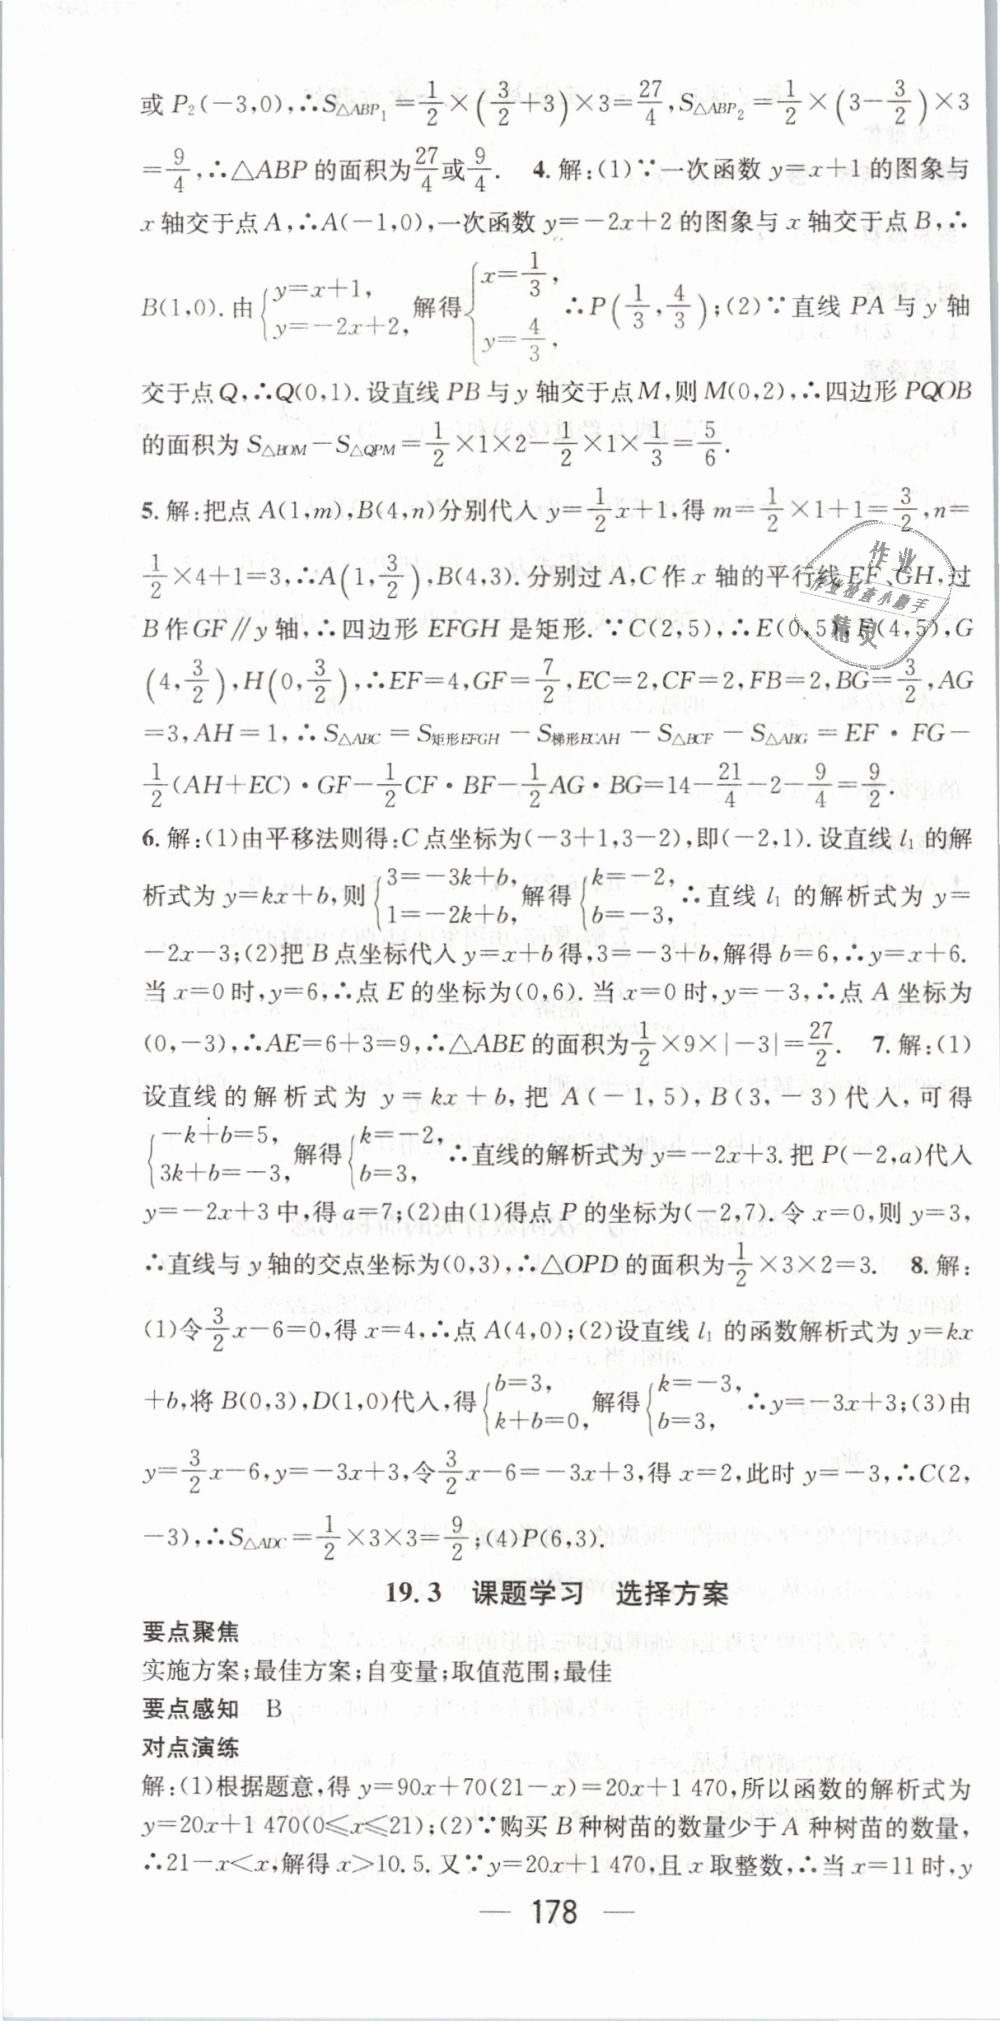 或 P₂(−3,0),∴S△ABP₁=1/2×(3/2+3)×3=27/4,S△ABP₂=1/2×(3−3/2)×3
=9/4,∴△ABP的面积为27/4或9/4. 4.解:(1)∵一次函数 y=x+1 的图象与
x 轴交于点 A,∴A(−1,0),一次函数 y=−2x+2 的图象与 x 轴交于点 B,∴
B(1,0).由{y=x+1, y=−2x+2,解得{x=1/3, y=4/3,∴P(1/3,4/3);(2)∵直线 PA 与 y 轴
交于点 Q,∴Q(0,1).设直线 PB 与 y 轴交于点 M,则 M(0,2),∴四边形 PQOB
的面积为 S△BOM−S△QPM=1/2×1×2−1/2×1×1/3=5/6.
5.解:把点 A(1,m),B(4,n)分别代入 y=1/2x+1,得 m=1/2×1+1=3/2,n=
1/2×4+1=3,∴A(1,3/2),B(4,3).分别过 A,C 作 x 轴的平行线 EF、GH,过
B 作 GF∥y 轴,∴四边形 EFGH 是矩形.∵C(2,5),∴E(0,5),F(4,5),G
(4,3/2),H(0,3/2),∴EF=4,GF=7/2,EC=2,CF=2,FB=2,BG=3/2,AG
=3,AH=1,∴S△ABC=S矩形EFGH−S梯形ECAH−S△BCF−S△ABG=EF·FG−
1/2(AH+EC)·GF−1/2CF·BF−1/2AG·BG=14−21/4−2−9/4=9/2.
6.解:(1)由平移法则得:C 点坐标为(−3+1,3−2),即(−2,1).设直线 l₁ 的解
析式为 y=kx+b,则{3=−3k+b, 1=−2k+b,解得{k=−2, b=−3,∴直线 l₁ 的解析式为 y=
−2x−3;(2)把 B 点坐标代入 y=x+b 得,3=−3+b,解得 b=6,∴y=x+6.
当 x=0 时,y=6,∴点 E 的坐标为(0,6).当 x=0 时,y=−3,∴点 A 坐标为
(0,−3),∴AE=6+3=9,∴△ABE 的面积为1/2×9×|−3|=27/2. 7.解:(1)
设直线的解析式为 y=kx+b,把 A(−1,5),B(3,−3)代入,可得
{−k+b=5, 3k+b=−3,解得{k=−2, b=3,∴直线的解析式为 y=−2x+3.把 P(−2,a)代入
y=−2x+3 中,得 a=7;(2)由(1)得点 P 的坐标为(−2,7).令 x=0,则 y=3,
∴直线与 y 轴的交点坐标为(0,3),∴△OPD 的面积为1/2×3×2=3. 8.解:
(1)令3/2x−6=0,得 x=4,∴点 A(4,0);(2)设直线 l₁ 的函数解析式为 y=kx
+b,将 B(0,3),D(1,0)代入,得{b=3, k+b=0,解得{k=−3, b=3,∴y=−3x+3;(3)由
y=3/2x−6,y=−3x+3,令3/2x−6=−3x+3,得 x=2,此时 y=−3,∴C(2,
−3),∴S△ADC=1/2×3×3=9/2;(4)P(6,3).
19.3 课题学习 选择方案
要点聚焦
实施方案;最佳方案;自变量;取值范围;最佳
要点感知 B
对点演练
解:(1)根据题意,得 y=90x+70(21−x)=20x+1 470,所以函数的解析式为
y=20x+1 470(0≤x≤21);(2)∵购买 B 种树苗的数量少于 A 种树苗的数量,
∴21−x<x,解得 x>10.5.又∵y=20x+1 470,且 x 取整数,∴当 x=11 时,y
— 178 —
作业
作业检查小助手
精灵